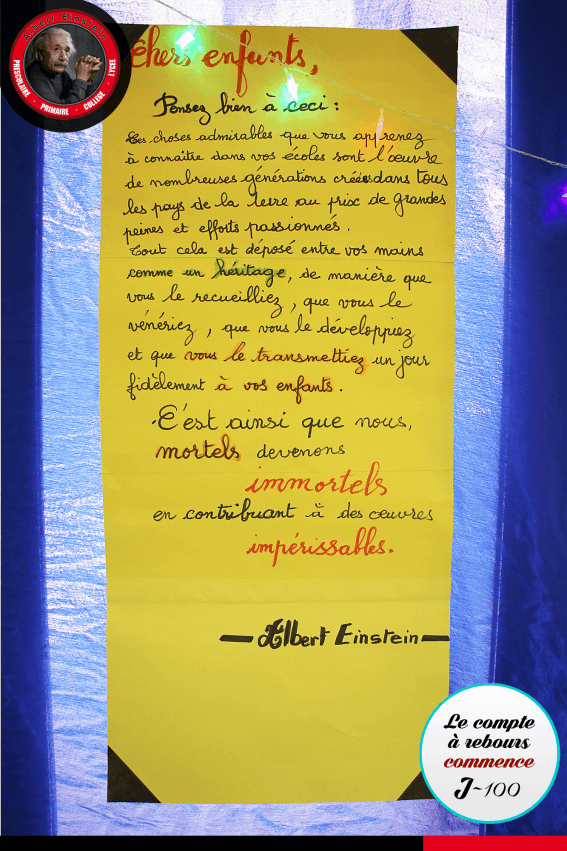 Albert Einstein
PRESCOLAIRE · PRIMAIRE · COLLEGE · LYCEE
chers enfants,
Pensez bien à ceci :
Les choses admirables que vous apprenez
à connaître dans vos écoles sont l'œuvre
de nombreuses générations créées dans tous
les pays de la terre au prix de grandes
peines et efforts passionnés.
Tout cela est déposé entre vos mains
comme un héritage, de manière que
vous le recueilliez, que vous le
vénériez, que vous le développiez
et que vous le transmettiez un jour
fidèlement à vos enfants.
C'est ainsi que nous,
mortels devenons
immortels
en contribuant à des œuvres
impérissables.
— Albert Einstein —
Le compte
à rebours
commence
J-100